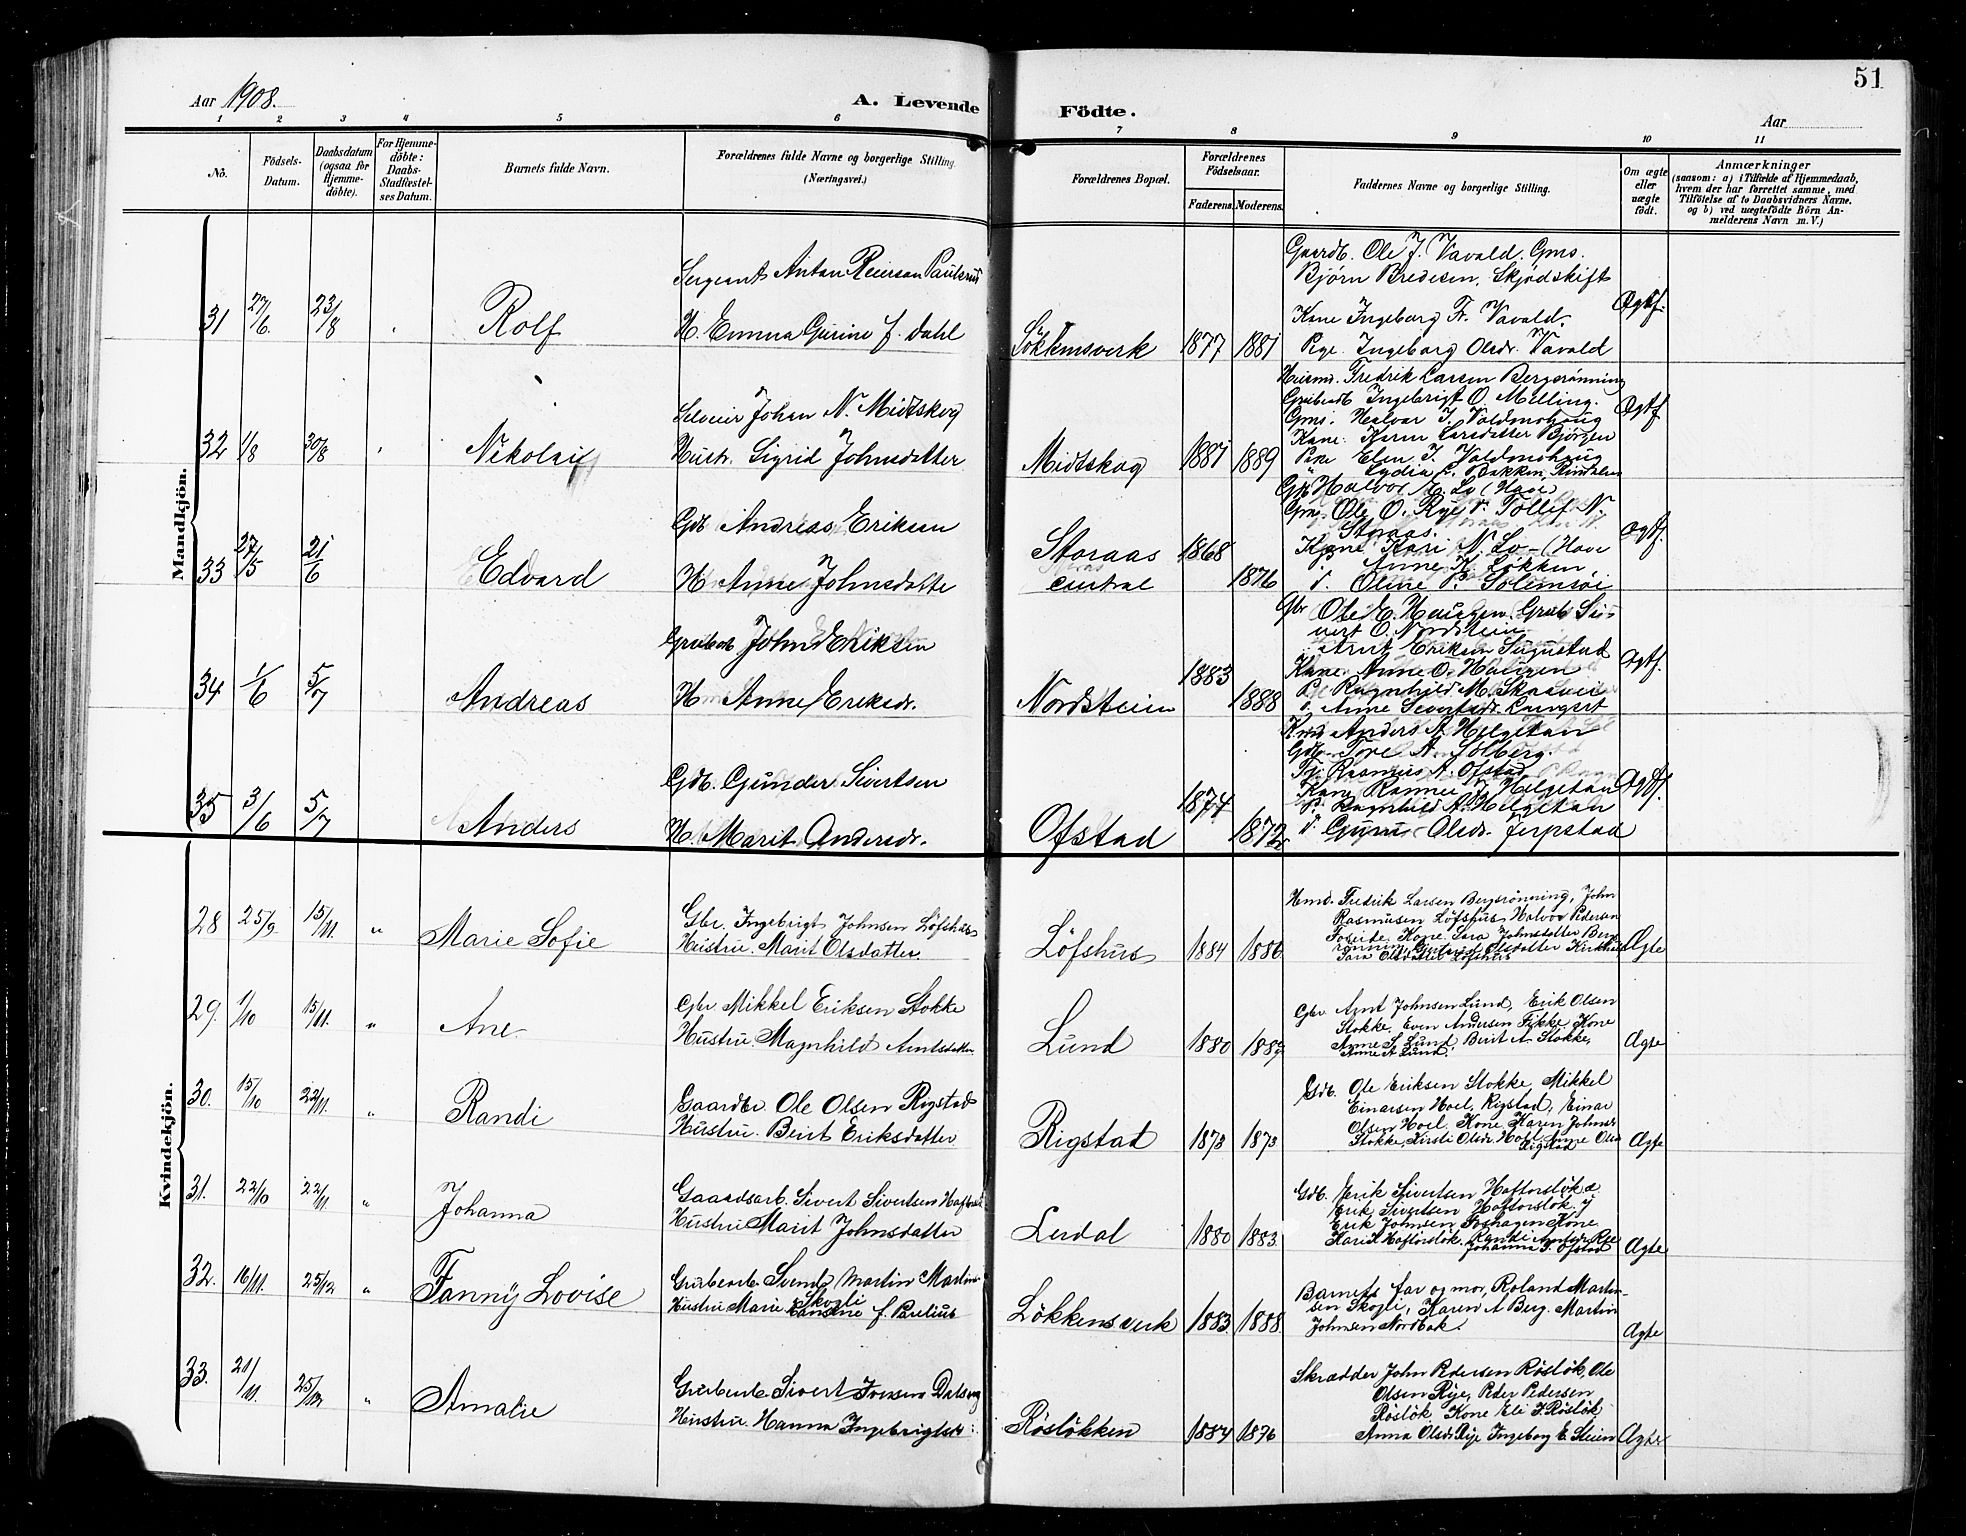 51
Aar 1908.
A. Levende Födte.
Aar
1 2 3 4 5 6 7 8 9 10 11
No.
Födsels-
Datum.
Daabsdatum
(ogsaa for
Hjemme-
döbte).
For Hjemme-
döbte:
Daabs-
Stadfæstel-
ses Datum.
Barnets fulde Navn.
Forældrenes fulde Navne og borgerlige Stilling.
(Næringsvei.)
Forældrenes Bopæl.
Forældrenes
Födselsaar.
Faderens. Moderens.
Faddernes Navne og borgerlige Stilling.
Om ægte
eller
uægte
födt.
Anmærkninger
(saasom: a) i Tilfælde af Hjemmedaab,
hvem der har forrettet samme, med
Tilföielse af to Daabsvidners Navne.
og b) ved uægtefödte Börn An-
melderens Navn m. V.)
Mandkjön.
31 27/6 23/8
Rolf
Sergeant Anton Reierson Paulsrud
H. Emma Gurine f. Dahl
Løkkensverk 1877 1881
Gaardb. Ole J. Vavald. Gms.
Bjørn Bredesen, Skjødskift
Kone Ingeborg Fr. Vavald.
Pige Ingeborg Olsdr. Vavald
Ægtf.
32 1/8 30/8
Nikolai
Selveier Johan N. Midtskog
Hustr. Sigrid Johnsdatter
Midtskog 1881 1889
Husmd. Fredrik Larsen Bergsrønning
Grubearb Ingebrigt O. Melling.
Gms. Halvor J. Voldmohaug
Kone: Karen Larsdatter Bjørgen
Pige Elen J. Voldmohaug
Lydia L. Bakken, Rindalen
Ægtf
33 27/5 21/6
Edvard
Gdb Andreas Eriksen
H. Anne Johnsdatte
Storaas
central
1868 1876
Gdb Halvor E. Lo (Hove)
Gms. Ole O. Rye. Tollef N.
Storaas.
Kone Kari N. Lo - (Hove
P. Anne K. Løkken
d. Oline P. Solemsøi
Ægtf.
34 1/6 5/7
Andreas
Grubearb John Eriksen
H Anne Eriksdr.
Nordsteien 1883 1888
Gbr Ole E. Haugen. Grub Si-
vert O. Nordstein
Arnt Eriksen Sugustad
Kone Anne O. Haugen
P. Ragnhild M. Skaarvei
d. Anne Sivertsdr.
Ægtf.
35 3/6 5/7
Anders
Gdb. Gunder Sivertsen
H. Marit Andersdr.
Ofstad 1874 1872
Anders A Helgetan
Gdb. Tore A. Solberg.
Tj. Rasmus A. Ofstad
Kone Rannei Helgetan
P. Ragnhild A. Helgetan
d. Guru Olsdr. Jerpstad
Ægtf.
Kvindekjön.
28 25/9 15/11 "
Marie Sofie
Gbr. Ingebrigt Johnsen Löfshus
Hustru. Marit Olsdatter.
Löfshus 1884 1886
Hmd. Fredrik Larsen Bergsrønning, John
Rasmusen Löfshus Halvor Pedersen
Foseide, Kone. Sara Johnsdatter Berg-
rönning, Olsdatter
Sara Olsdatter Löfshus
Ægte
29. 1/10 15/11. "
Ane
Gbr Mikkel Eriksen Stokke
Hustru. Magnhild Arntsdatter
Lund 1880 1889
Gbr Arnt Johnsen Lund, Erik Olsen
Stokke. Even Andersen Fikke, Kone
Anne S Lund, Berit A Stokke,
Anne A Lund.
Ægte
30. 15/10 22/11. "
Randi
Gaardbr. Ole Olsen Rigstad
Hustru. Berit Eriksdatter
Rigstad 1873 1873
Gdb. Ole Eriksen Stokke, Mikkel
Einarsen Hoel, Rigstad, Einar
Olsen Hoel. Kone Karen Johnsd
Stokke, Kirsti Olsdr Hoel Anne Olsd
Rigstad
Ægte
31. 22/10 22/11 "
Johanna
Gaardsarb. Sivert Sivertsen
Hustru Marit Johnsdatter
Lerdal 1880 1883
Gdb. Erik Sivertsen Haftorslök d
Erik Sivertsen Haftorslök. J
Erik Johnsen Foshagen Kone
Karen Haftorslök. Randi Arntsdr Rye
Johanna S. Ofstad
Ægte
32. 16/11. 25/12 "
Fanny Lovise
Grubearb. Svend Martin Martin-
Skogli
Hustru Marie f. Parelius
Lökkensverk 1883 1888
Barnets far og mor, Roland Martin-
sen Skogli, Karen A Berg. Martin
Johnsen Nordbak.
Ægte
33. 21/11. 25/12 "
Amalie
Grubearb Sivert Iversen
Hustru. Hanna Ingebrigtsd:
Röslökken 1884 1876
Skrædder John Pedersen Röslök, Ole
Olsen Rye, Peder Pedersen
Röslök, Kone Eli J. Röslök
Anna Olsdr Rye Ingeborg E. Steien
Ægte